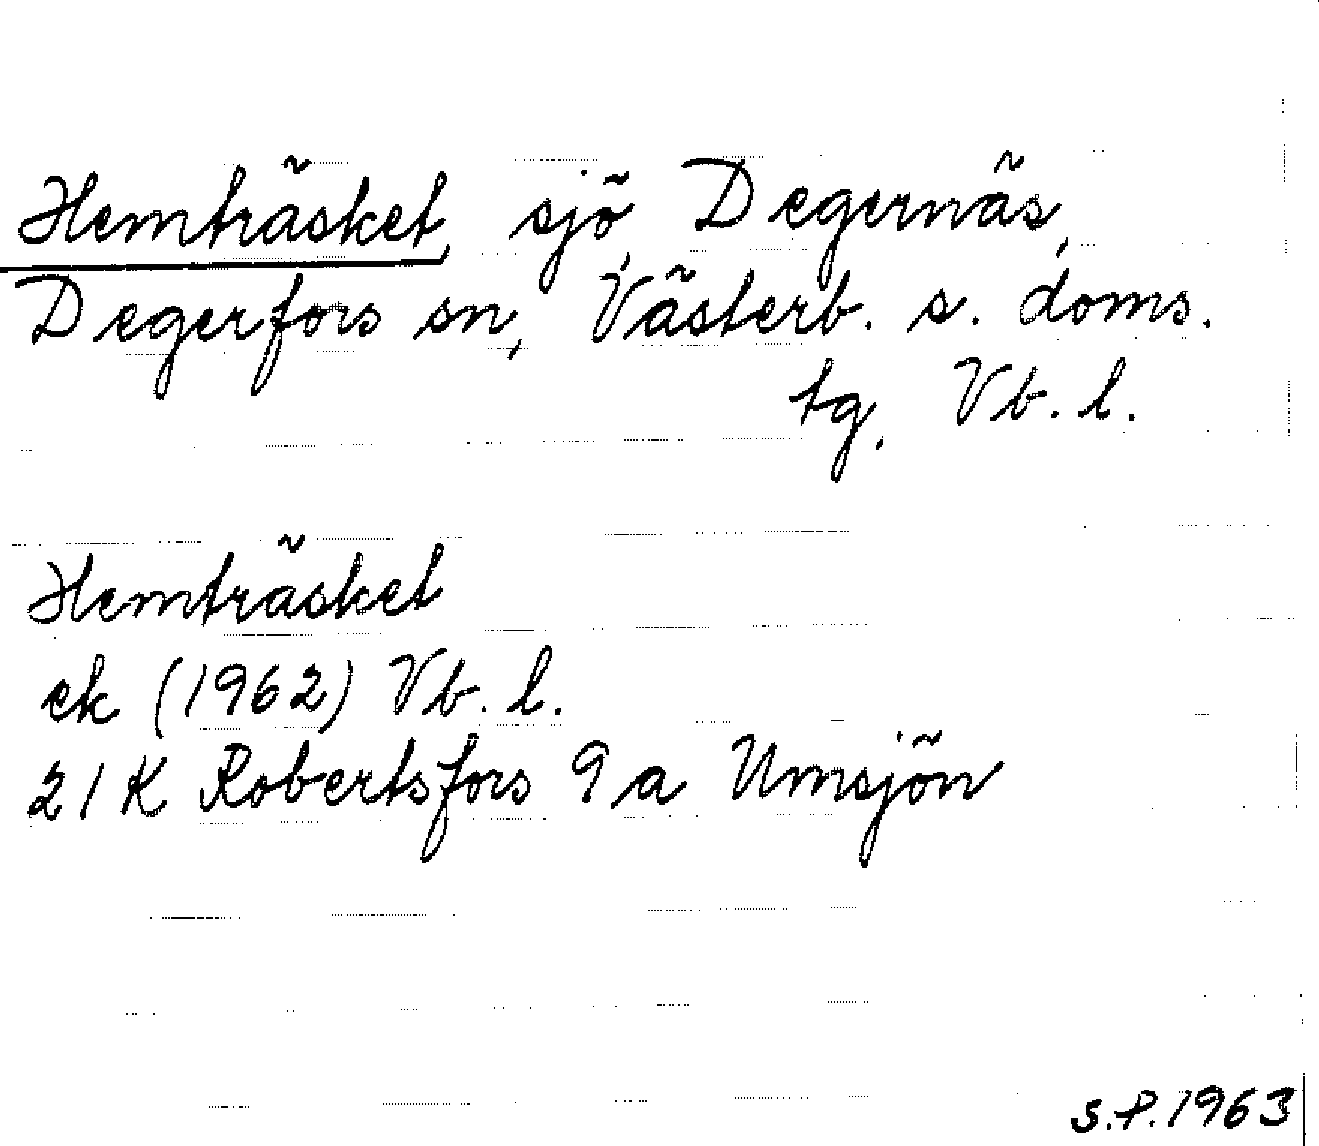 Hemträsket, sjö, Degernäs,
Degerfors sn, Västerb. s. doms.
tg, Vb. l.
Hemträsket
ek (1962) Vb. l.
21 K Robertsfors 9 a Umsjön
S.P. 1963